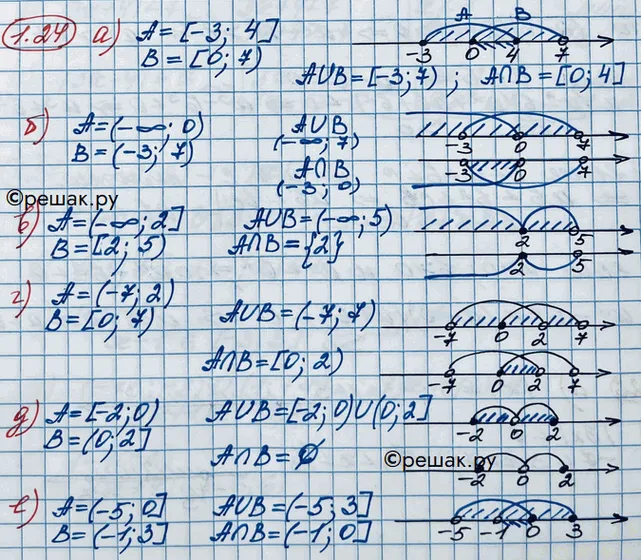 1.24 а) A = [-3; 4]
B = [0; 7)
A B
-3 0 4 7
A∪B = [-3; 7) ; A∩B = [0; 4]
б) A = (-∞; 0)
B = (-3; 7)
A∪B
(-∞; 7)
A∩B
(-3; 0)
-3 0 7
-3 0 7
©решак.ру
в) A = (-∞; 2]
B = [2; 5)
A∪B = (-∞; 5)
A∩B = {2}
2 5
2 5
г) A = (-7; 2)
B = [0; 7)
A∪B = (-7; 7)
A∩B = [0; 2)
-7 0 2 7
-7 0 2 7
д) A = [-2; 0)
B = (0; 2]
A∪B = [-2; 0)∪(0; 2]
A∩B = ∅
-2 0 2
©решак.ру
-2 0 2
е) A = (-5; 0]
B = (-1; 3]
A∪B = (-5; 3]
A∩B = (-1; 0]
-5 -1 0 3